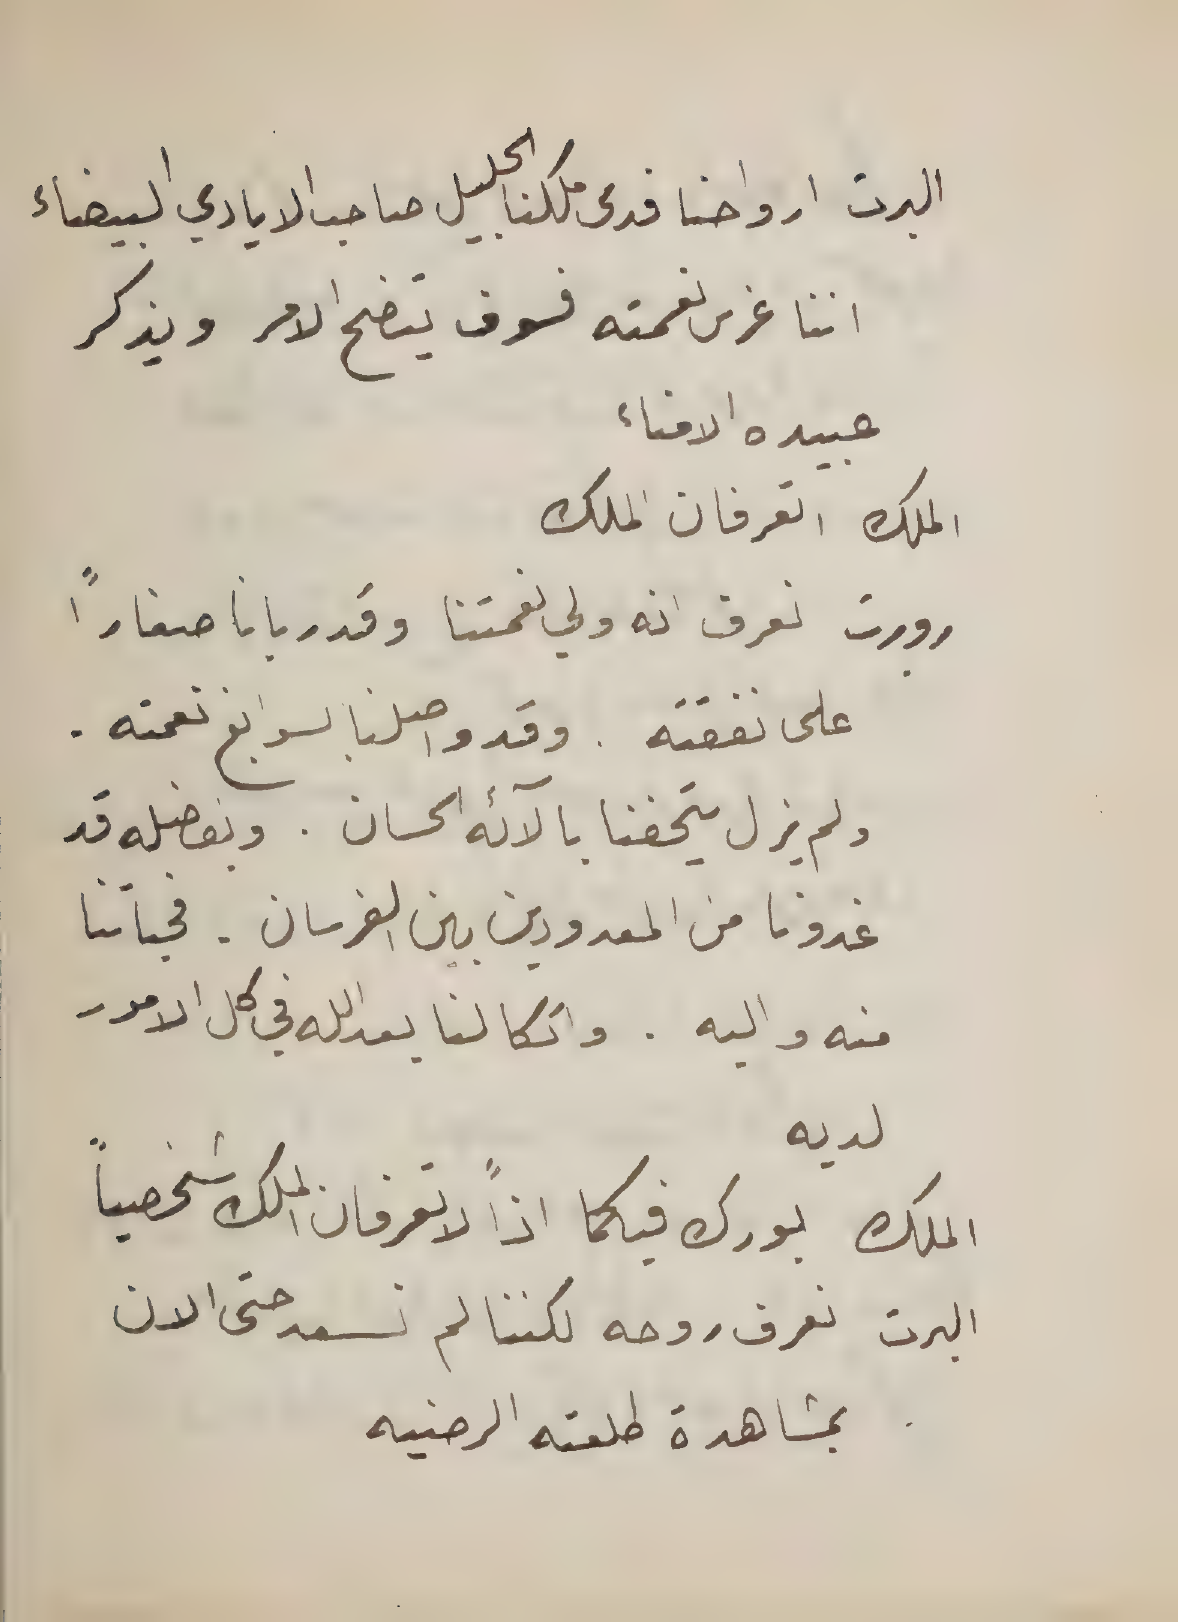 البرت ارواحنا فدى ملكنا الجليل صاحب الايادي البيضاء
اننا غرس نعمته فسوف يتضح الامر ويذكر
عبيده الامناء
الملك اتعرفان الملك
روبرت نعرف انه ولي نعمتنا وقد ربانا صغاراً
على نفقته . وقد واصلنا بسوابغ نعمته .
ولم يزل يتحفنا بالآئه الحسان . وبفضله قد
غدونا من المعدودين بين الفرسان . فحياتنا
منه واليه . واتكالنا بعد الله في كل الامور
لديه
الملك بورك فيكما اذاً لا تعرفان الملك شخصياً
البرت نعرف روحه لكننا لم نسعد حتى الان
بمشاهدة طلعته الرضيه